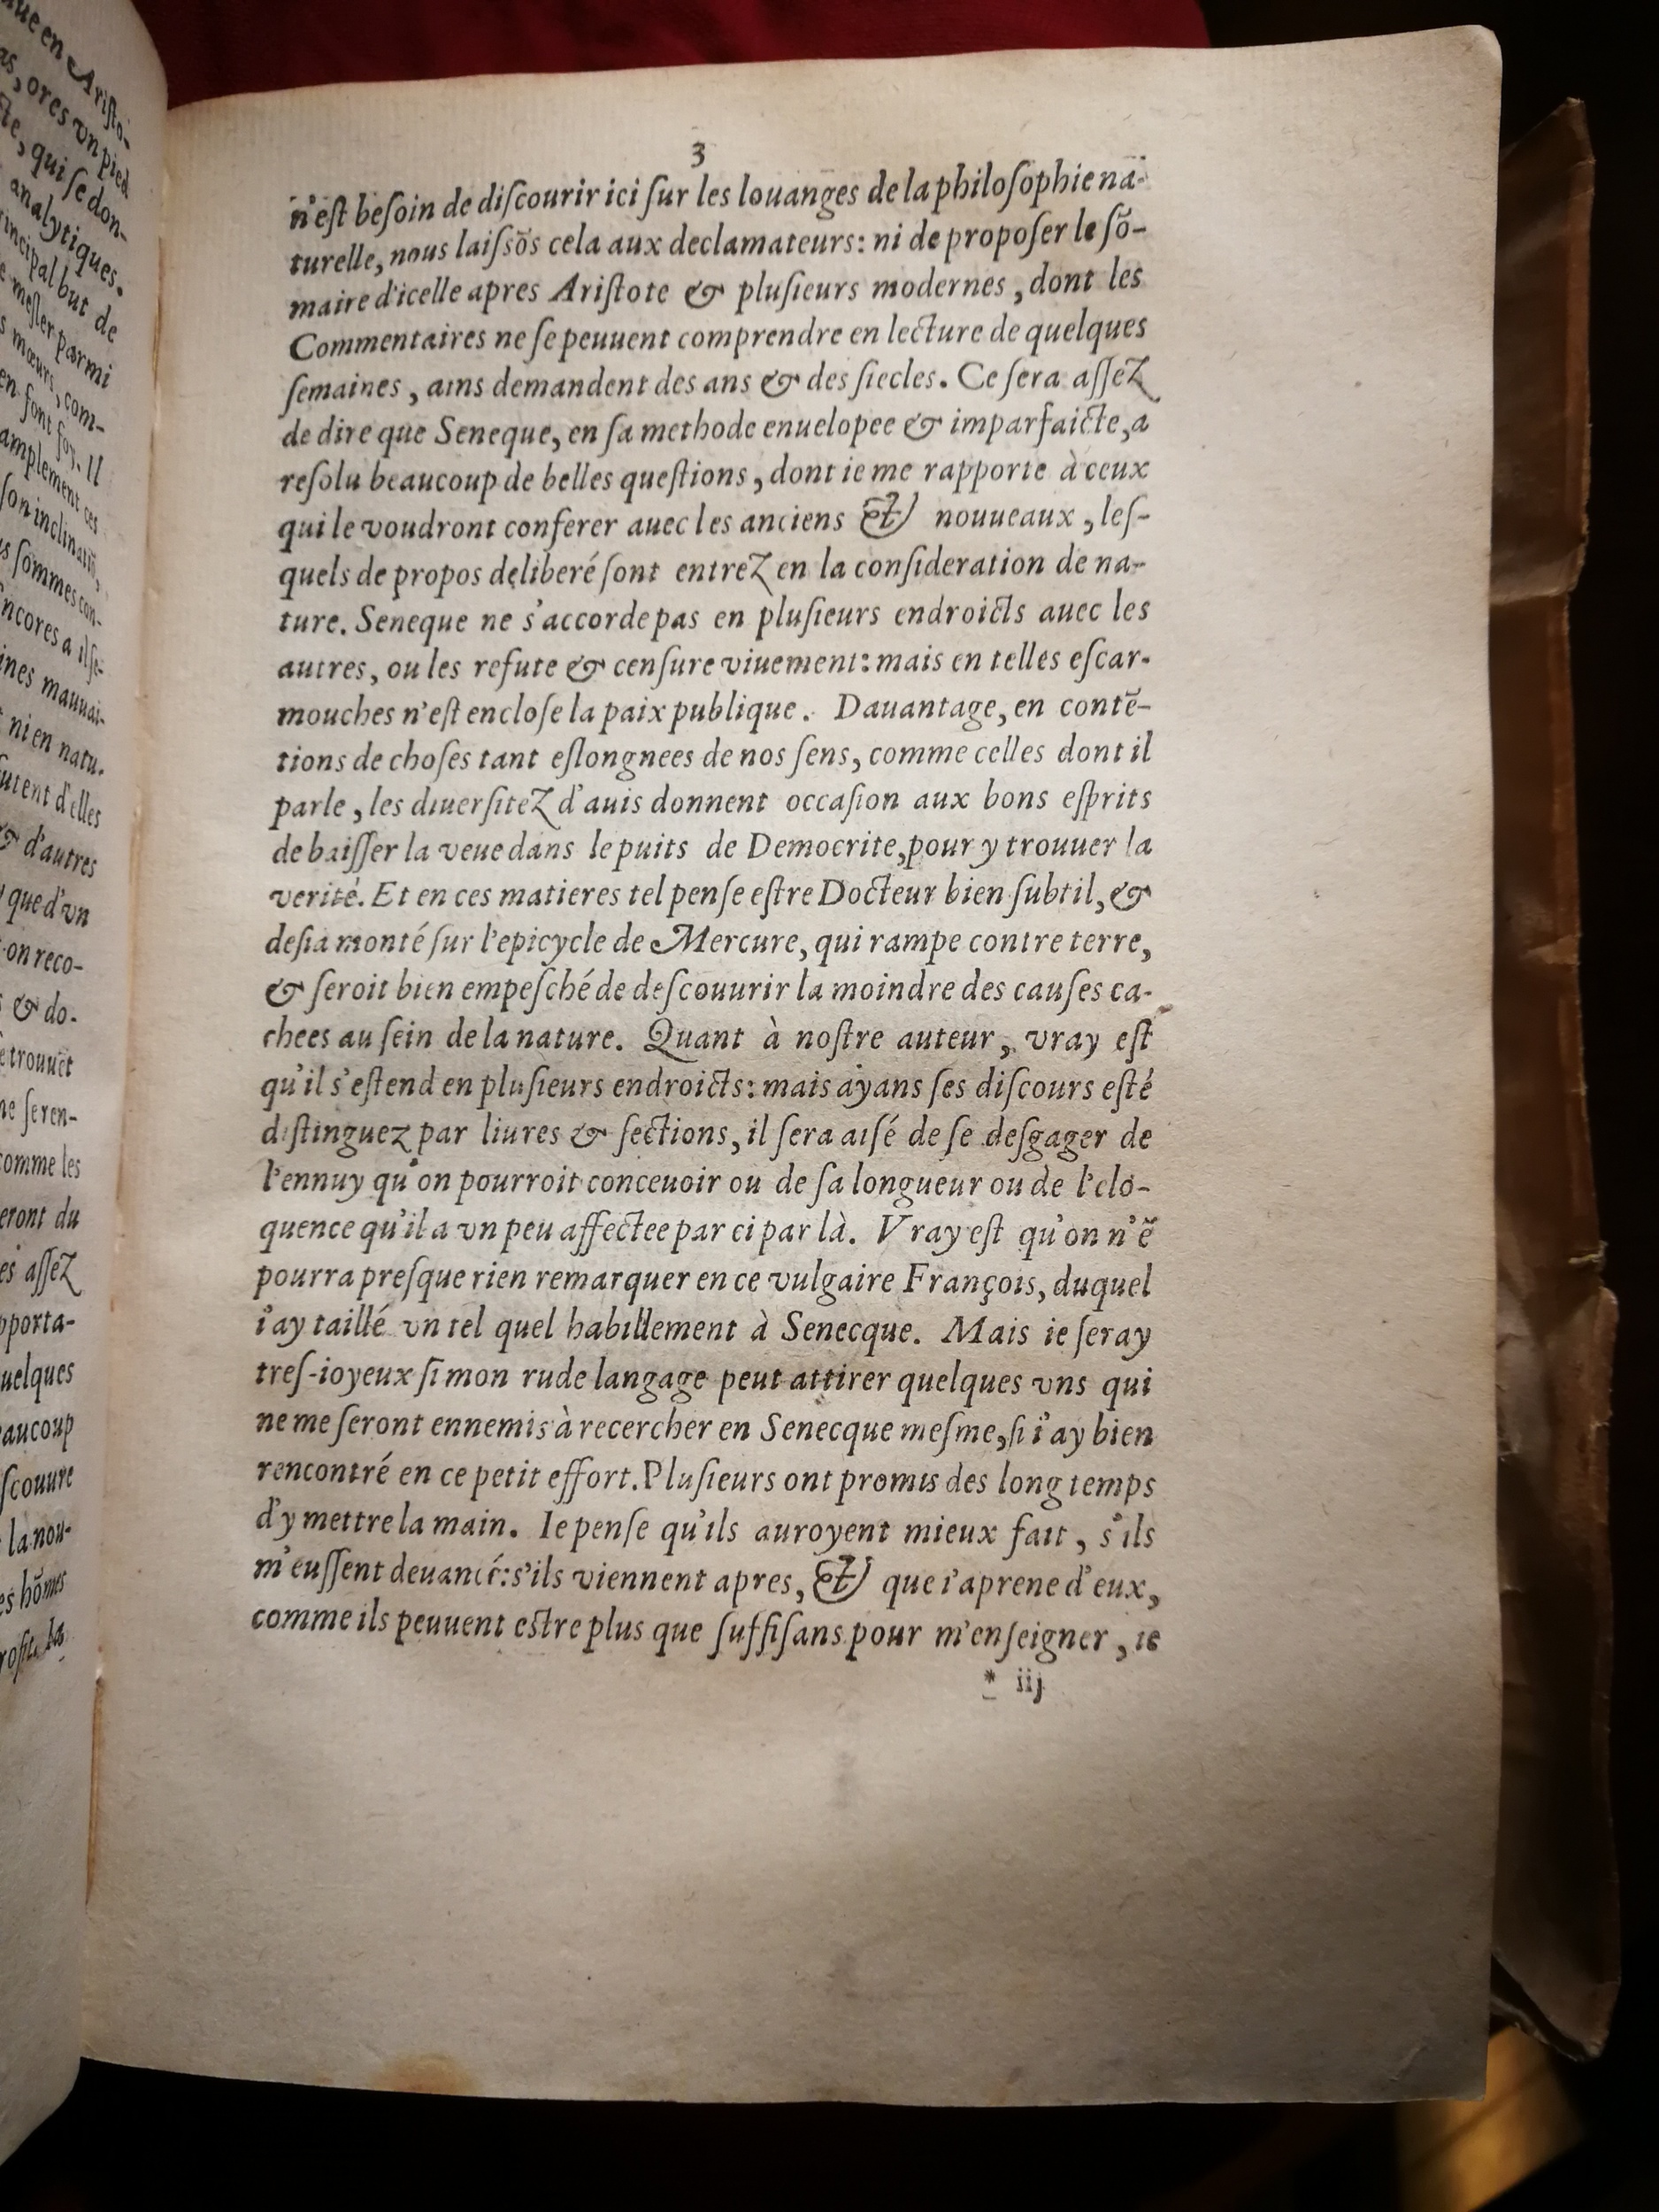 ue en Aristo-
as, ores vn pied
cte, qui se don-
analytiques.
rincipal but de
mesler parmi
s mœurs, com-
en font foy. Il
amplement ces
son inclinatiõ,
s sommes con-
ncores a il se-
ines mauuai-
ni en natu-
utent d'elles
& d'autres
que d'vn
on reco-
& do-
trouuẽt
ne se ren-
comme les
eront du
es assez
pporta-
uelques
aucoup
scouure
la nou-
es hõmes
3
n'est besoin de discourir ici sur les louanges de la philosophie na-
turelle, nous laissõs cela aux declamateurs: ni de proposer le sõ-
maire d'icelle apres Aristote & plusieurs modernes, dont les
Commentaires ne se peuuent comprendre en lecture de quelques
semaines, ains demandent des ans & des siecles. Ce sera assez
de dire que Seneque, en sa methode enuelopee & imparfaicte, a
resolu beaucoup de belles questions, dont ie me rapporte à ceux
qui le voudront conferer auec les anciens & nouueaux, les-
quels de propos deliberé sont entrez en la consideration de na-
ture. Seneque ne s'accorde pas en plusieurs endroicts auec les
autres, ou les refute & censure viuement: mais en telles escar-
mouches n'est enclose la paix publique. Dauantage, en contẽ-
tions de choses tant eslongnees de nos sens, comme celles dont il
parle, les diuersitez d'auis donnent occasion aux bons esprits
de baisser la veue dans le puits de Democrite, pour y trouuer la
verité. Et en ces matieres tel pense estre Docteur bien subtil, &
desia monté sur l'epicycle de Mercure, qui rampe contre terre,
& seroit bien empesché de descouurir la moindre des causes ca-
chees au sein de la nature. Quant à nostre auteur, vray est
qu'il s'estend en plusieurs endroicts: mais ayans ses discours esté
distinguez par liures & sections, il sera aisé de se desgager de
l'ennuy qu'on pourroit conceuoir ou de sa longueur ou de l'elo-
quence qu'il a vn peu affectee par ci par là. Vray est qu'on n'ẽ
pourra presque rien remarquer en ce vulgaire François, duquel
i'ay taillé vn tel quel habillement à Senecque. Mais ie seray
tres-ioyeux si mon rude langage peut attirer quelques vns qui
ne me seront ennemis à recercher en Senecque mesme, si i'ay bien
rencontré en ce petit effort. Plusieurs ont promis des long temps
d'y mettre la main. Ie pense qu'ils auroyent mieux fait, s'ils
m'eussent deuancé: s'ils viennent apres, & que i'aprene d'eux,
comme ils peuuent estre plus que suffisans pour m'enseigner, ie
* iij